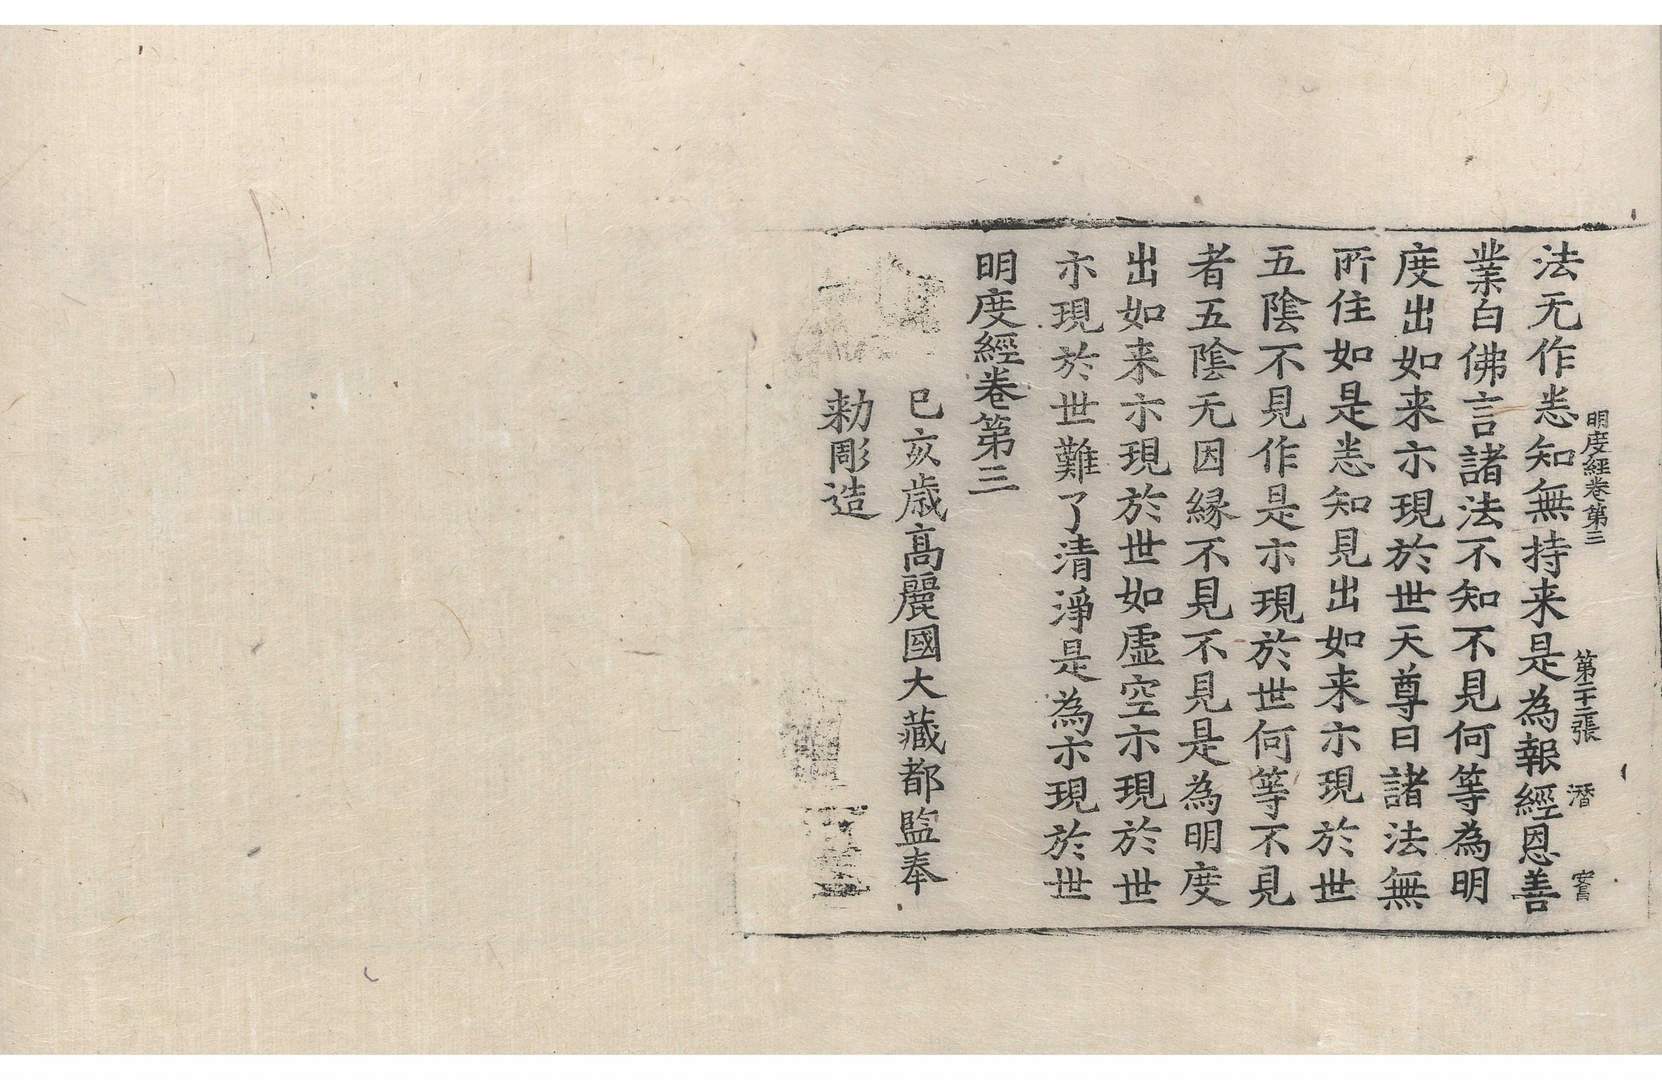 明度経卷第三 第二十二張 潛
法无作恙知無持来是為報經恩善
業白佛言諸法不知不見何等為明
度出如来亦現於世天尊曰諸法無
所住如是恙知見出如来亦現於世
五陰不見作是亦現於世何等不見
者五陰无因縁不見不見是為明度
出如来亦現於世如虛空亦現於世
亦現於世難了清淨是為亦現於世
明度經卷第三
己亥歳高麗國大藏都監奉
勅彫造